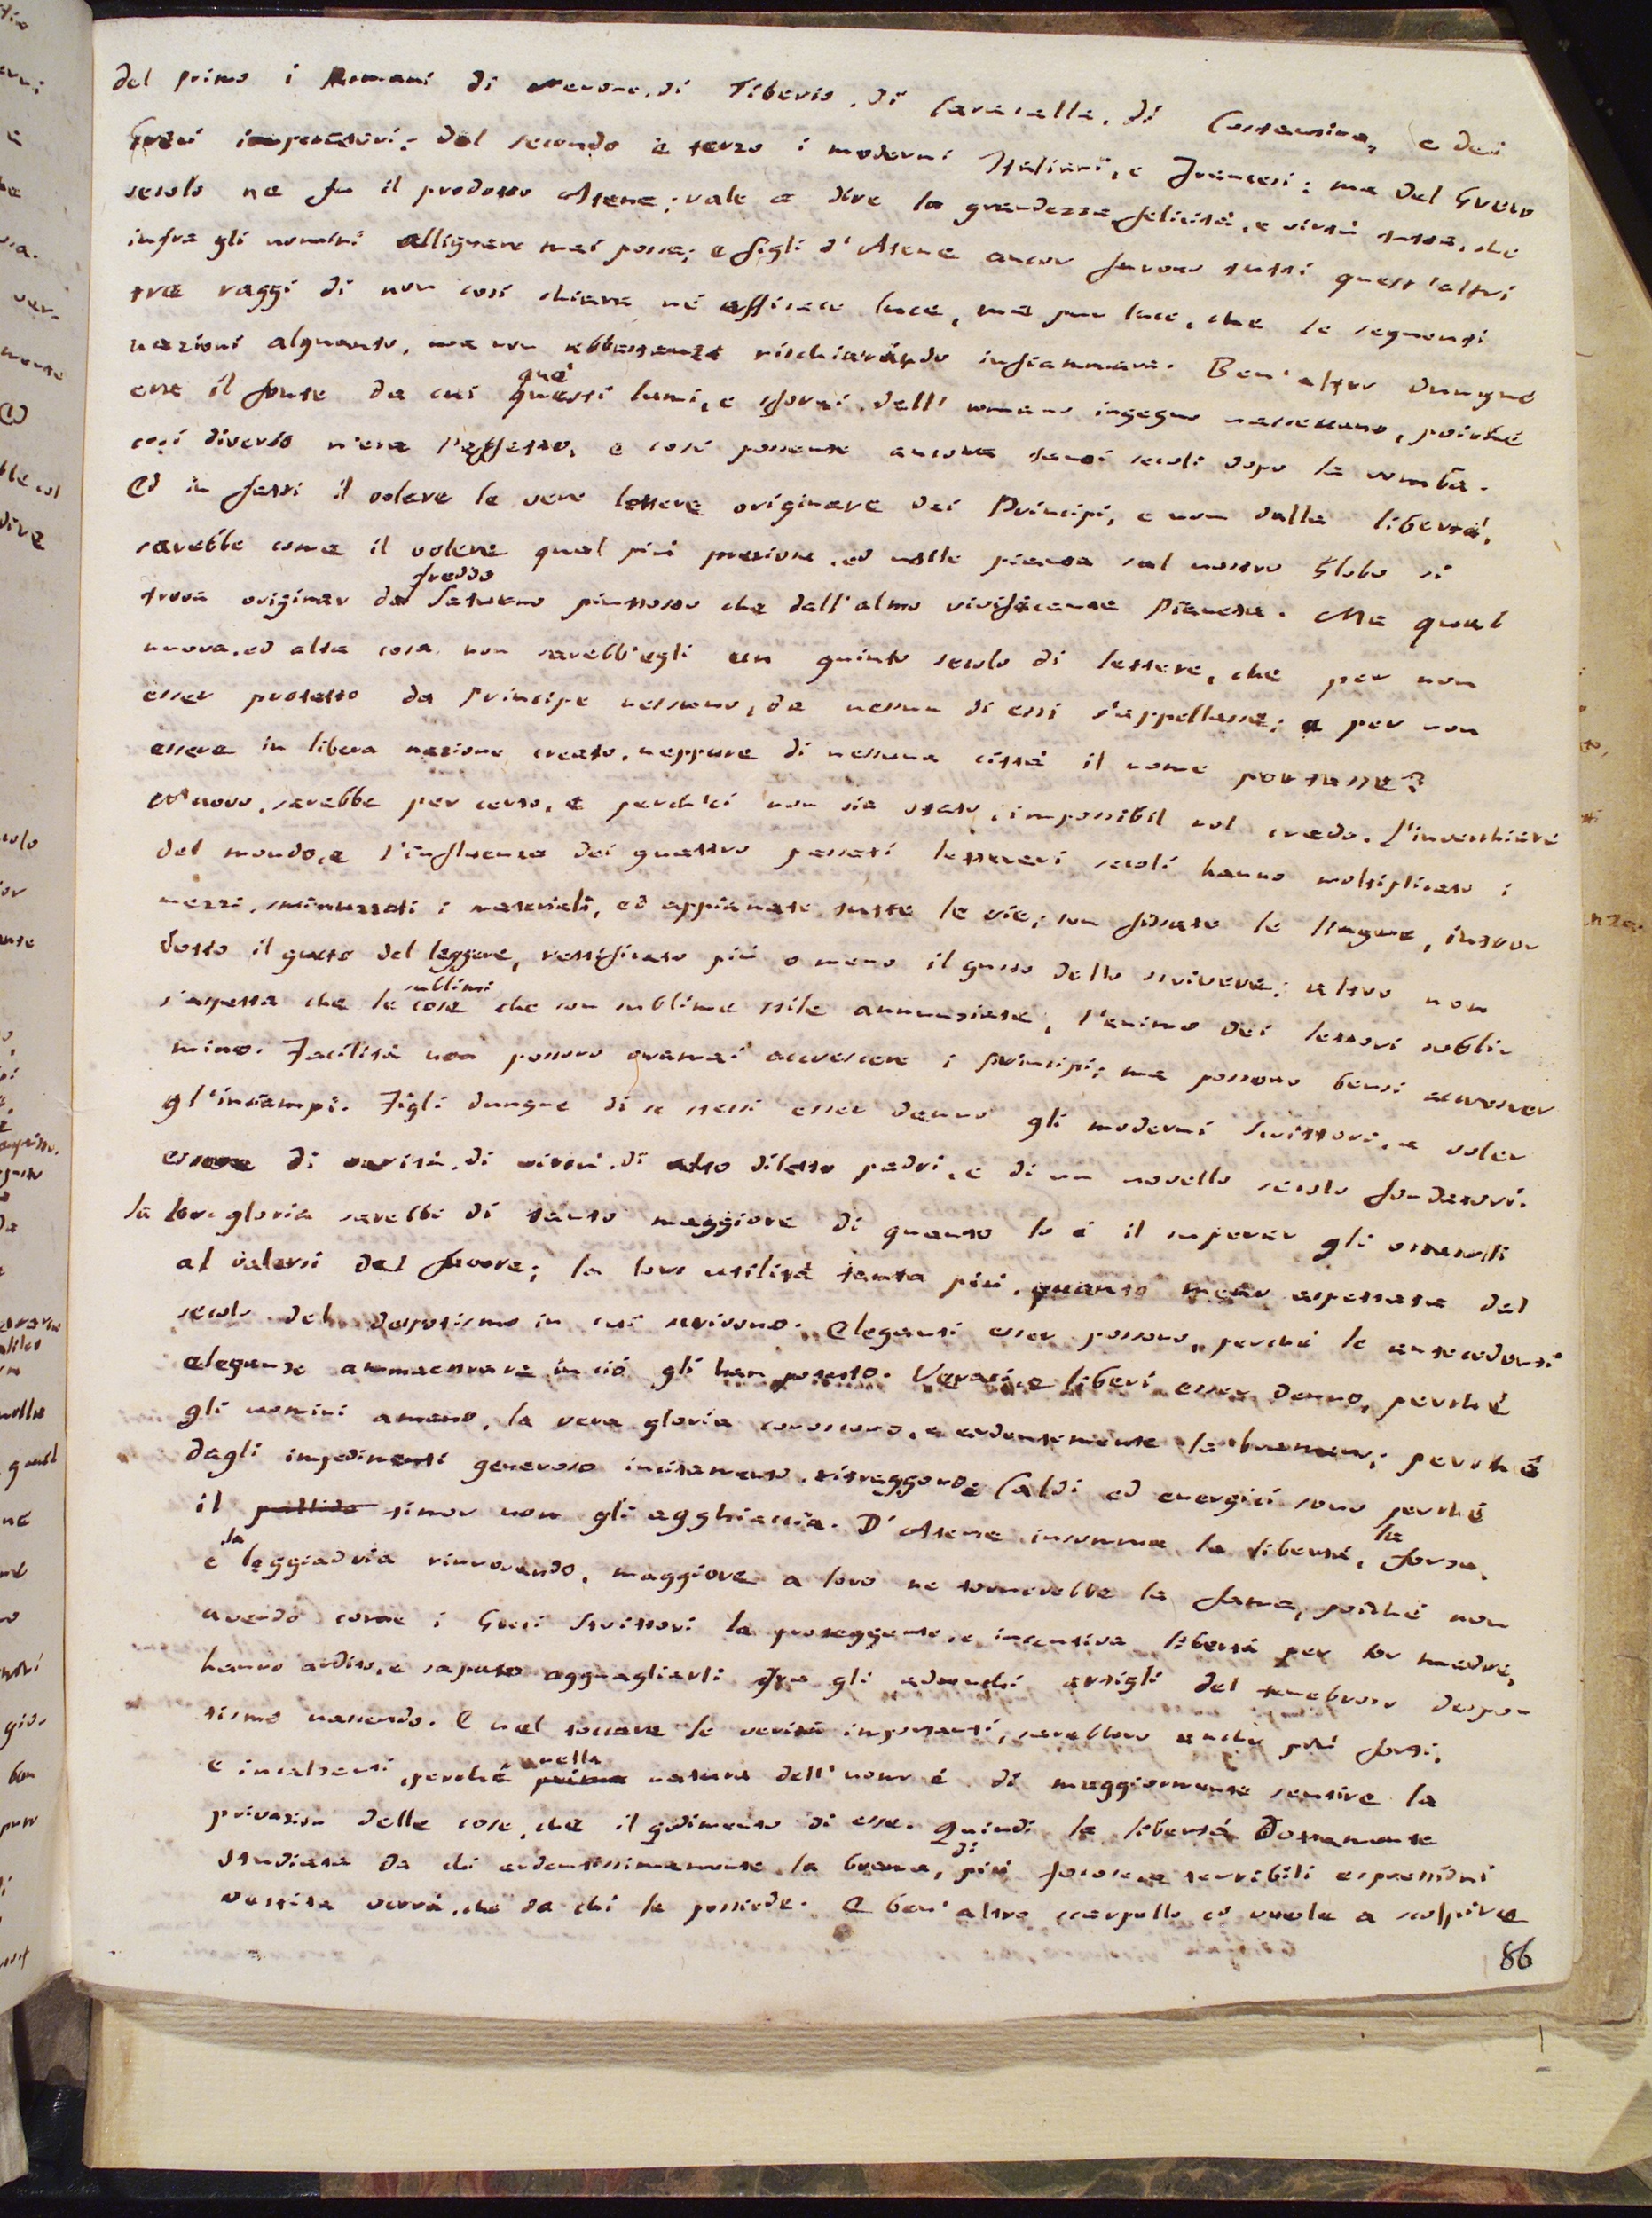 del primo i Romani di Nerone, di Tiberio, di Caracalla, di Costantino, e dei
Greci imperatori: del secondo e terzo i moderni Italiani, e Francesi: ma del Greco
secolo ne fu il prodotto Atene; vale a dire la grandezza, felicità, e virtù tutta, che
infra gli uomini allignare mai possa; e figli d'Atene ancor furono tutti quest'altri
tre raggi di non così chiara né efficace luce, ma pur luce, che le seguenti
nazioni alquanto, ma non abbastanza rischiarando infiammava. Ben'altro dunque
era il fonte da cui que' questi lumi, e sforzi dell'umano ingegno nascevano, poiché
così diverso n'era l'effetto, e così possente ancora tanti secoli dopo la tomba.
Ed in fatti il volere le vere lettere originare dai Principi, e non dalla libertà,
sarebbe come il volere qual più preziosa, ed utile pianta sul nostro Globo si
trova originar dal freddo Saturno piuttosto che dall'almo vivificante Pianeta. Ma qual
nuova, ed alta cosa non sarebb'egli un quinto secolo di lettere, che per non
esser protetto da Principe nessuno, da nessun di essi s'appellasse; e per non
essere in libera nazione creato, neppure di nessuna città il nome portasse?
nuovo, sarebbe per certo, e perch'ei non sia stato, impossibil nol credo. L'invecchiare
del mondo, e l'influenza dei quattro passati letterari secoli hanno moltiplicato i
mezzi, sminuzzati i materiali, ed appianate tutte le vie; son fissate le lingue, intro-
dotto il gusto del leggere, rettificato più o meno il gusto dello scrivere; altro non
s'aspetta che le sublimi cose che con sublime stile annunziate, l'animo dei lettori subli-
mino. Facilità non possono oramai accrescere i Principi; ma possono bensì accrescer
gl'inciampi. Figli dunque di se stessi esser denno gli moderni Scrittori, a voler
essere di verità, di virtù, di alto diletto padri, e di un novello secolo fondatori.
La lor gloria sarebbe di tanto maggiore di quanto lo è il superar gli ostacoli
al valersi del favore; la loro utilità tanta più, quanto meno aspettata dal
secolo del despotismo in cui scrivono. Eleganti esser possono, perché le antecedenti
eleganze ammaestrare in ciò gli han potuto. Veraci, e liberi esser denno, perché
gli uomini amano, la vera gloria conoscono, e ardentemente la bramano; perché
dagli impedimenti generoso incitamento ritraggono. Caldi ed energici sono perché
il pallido timor non gli agghiaccia. D'Atene insomma la libertà, la forza,
e la leggiadria rinnovando, maggiore a loro ne tornerebbe la fama, poiché non
avendo come i Greci Scrittori la proteggente, e incentiva libertà per lor madre,
hanno ardito, e saputo agguagliarli fra gli adunchi artigli del tenebroso despo-
tismo nascendo. E nel toccare le verità importanti, sarebbero anche più forti,
e incalzanti, perché prima nella natura dell'uomo è di maggiormente sentire la
privazion delle cose, che il godimento di esse. Quindi la libertà dottamente
studiata da chi ardentissimamente la brama, di più focose, e terribili espressioni
vestita verrà, che da chi la possiede. E ben'altro scarpello ci vuole a scolpire
86